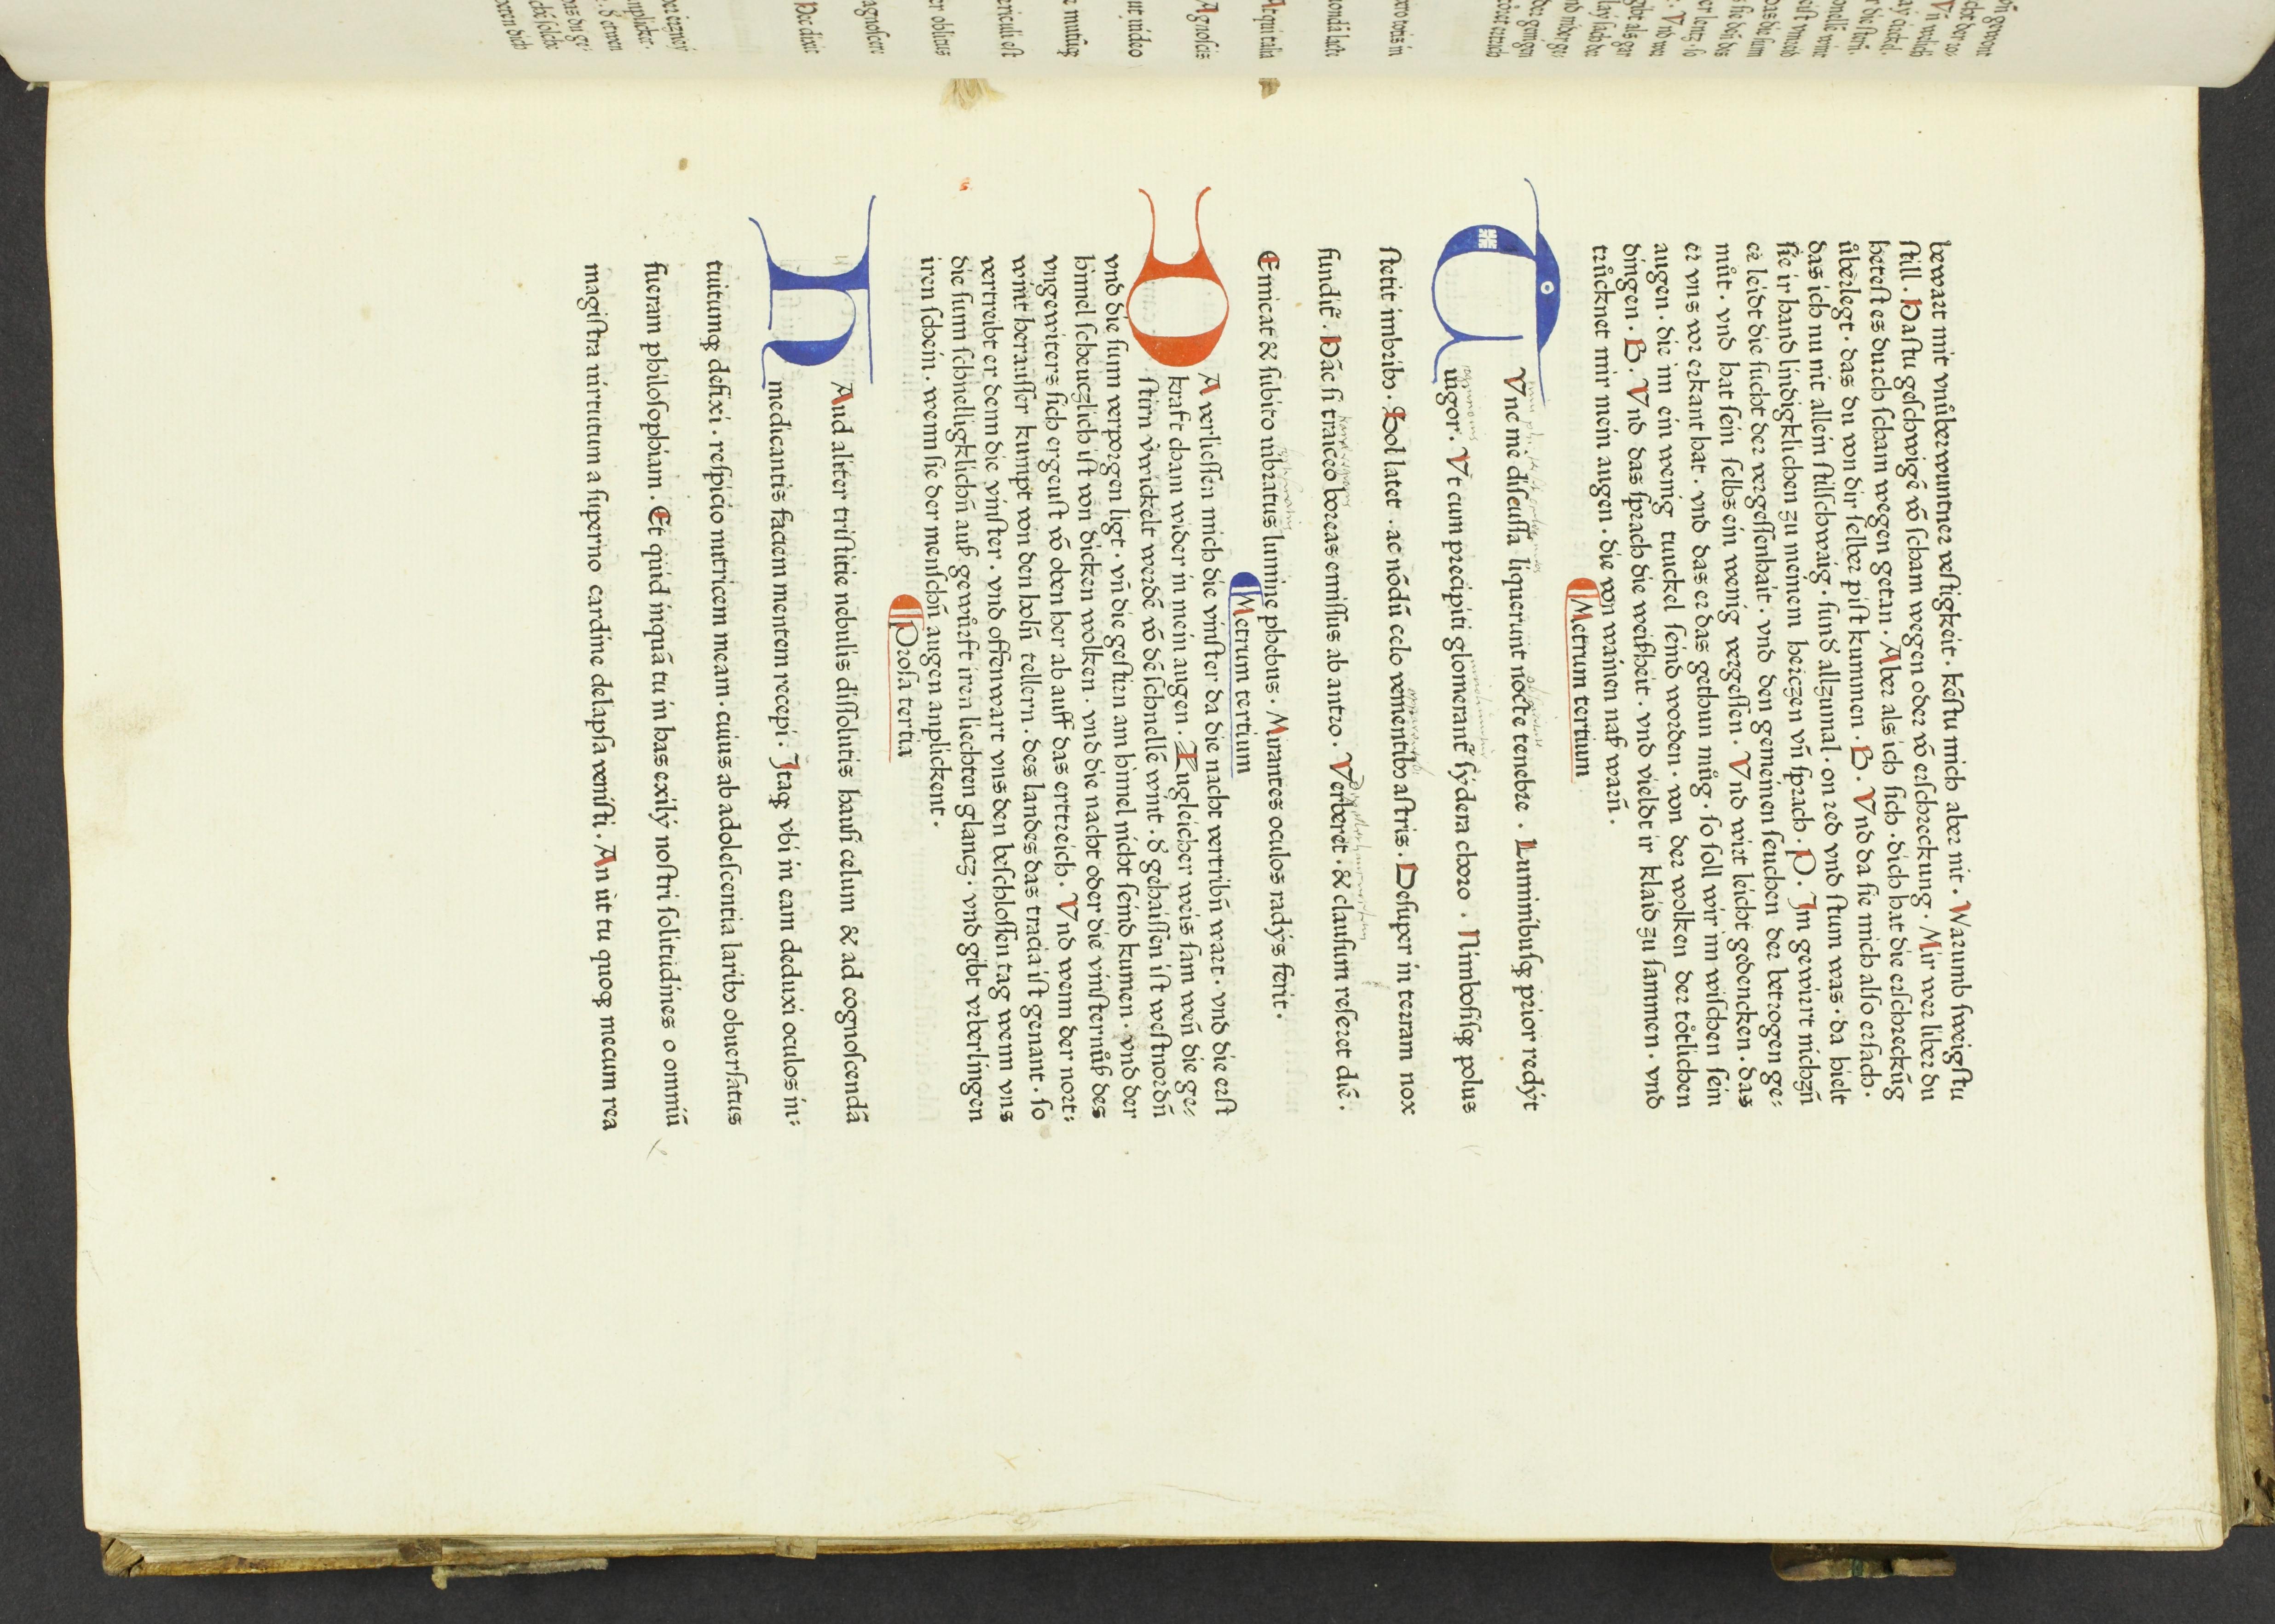 bewart mit vnüberwuntner veſtigkeit · kēſtu mich aber nit · Warumb ſweigſtu
ſtill · Haſtu geſchwigē vō ſcham wegen oder vō erſchreckung · Mir wer liber du
heteſt es durch ſcham wegen getan · Aber als ich ſich · dich hat die erſchreckūg
überlegt · das du von dir ſelber piſt kummen · B · Vnd da ſie mich alſo erſach ·
das ich nu nit allein ſtilſchwaig · ſund' allzumal · on red vnd ſtum was · da hielt
ſie ir hand lindigklichen zu meinem herczen vn̄ ſprach · P · Im gewirrt nichzn̄
er leidt die ſucht der vergeſſenhait · vnd den gemeinen ſeuchen der betrogen ge⸗
müt · vnd hat ſein ſelbs ein wenig vergeſſen · Vnd wirt leicht gedencken · das
er vns vor erkant hat · vnd das er das gethun müg · ſo ſoll wir im wiſchen ſein
augen · die im ein wenig tunckel ſeind worden · von der wolken der tötlichen
dingen · B · Vnd das ſprach die weiſheit · vnd vieldt ir klaid zu ſammen · vnd
trücknet mir mein augen · die von wainen naß warn̄ ·
Metrum tertium
TVnc me diſcuſſa liquerunt nocte tenebre · Luminibuſqꝫ prior redijt
uigor · Vt cum precipiti glomerant᷑ ſydera choro · Nimboſiſqꝫ polus
ſtetit imbribꝰ · Sol latet · ac nōdū celo vementibꝰ aſtris · Deſuper in terram nox
fundit᷑ · Hāc ſi traiceo boreas emiſſus ab antro · Verberet · & clauſum reſeret diē ·
Emicat & ſubito uibratus lumine phebus · Mirantes oculos radijs ferit ·
Metrum tertium
DA verlieſſen mich die vinſter da die nacht vertribn̄ wart · vnd die erſt
kraft cham wider in mein augen · Zugleicher weis ſam wen̄ die ge⸗
ſtirn v̓wickelt werdē vō dē ſchnellē wint · d' gehaiſſen iſt weſtnordn̄
vnd die ſunn verporgen ligt · vn̄ die geſtirn am himel nicht ſeind kumen · vnd der
himel ſcheuczlich iſt von dicken wolken · vnd die nacht oder die vinſternüß des
vngewiters ſich ergeuſt vō oben her ab auff das ertreich · Vnd wenn der nort⸗
wint herauſſer kumpt von den holn̄ tellern · des landes das tracia iſt genant · ſo
vertreibt er denn die vinſter · vnd offenwart vns den beſchloſſen tag wenn vns
die ſunn ſchnelligklichn̄ auß gewürft iren liechten glancz · vnd gibt vrberlingen
iren ſchein · wenn ſie der menſchn̄ augen anplickent ·
Proſa tertia
HAud aliter triſtitie nebulis diſſolutis hauſi celum & ad cognoſcendā
medicantis faciem mentem recepi · Itaqꝫ vbi in eam deduxi oculos in⸗
tuitumqꝫ defixi · reſpicio nutricem meam · cuius ab adoleſcentia laribꝰ obuerſatus
fueram philoſophiam · Et quid inquā tu in has exilij noſtri ſolitudines o omniū
magiſtra uirtutum a ſuperno cardine delapſa veniſti · An ùt tu quoqꝫ mecum rea